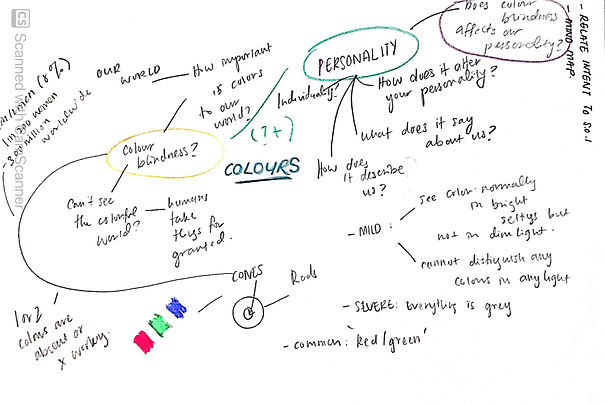 CS Scanned with CamScanner
- RELATE INTENT TO SO.1
- MIND MAP.
- Does colour
blindness
affects our
personality?
PERSONALITY
Individuality?
How does it alter
your personality?
what does it say
about us?
How does
it describe
us?
COLOURS
(?+)
OUR
WORLD
How important
is colors
to our
world?
Colour
blindness?
men (8%)
1 in 200 women
300 million
worldwide
Can't see
the colorful
world?
humans
take
for
granted.
1 or 2
colours are
absent or
x working.
CONES
Rods
- MILD :
see color normally
in bright
but
not in dim light.
cannot distinguish any
colours in any light
- SEVERE: Everything is grey
- common: 'Red/green'